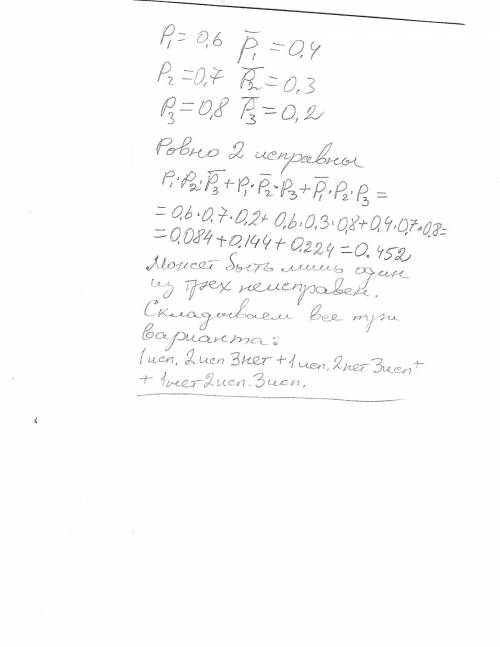 P₁ = 0,6 P̅₁ = 0,4
P₂ = 0,7 P̅₂ = 0,3
P₃ = 0,8 P̅₃ = 0,2
Ровно 2 исправны
P₁·P₂·P̅₃ + P₁·P̅₂·P₃ + P̅₁·P₂·P₃ =
= 0,6·0,7·0,2 + 0,6·0,3·0,8 + 0,4·0,7·0,8 =
= 0,084 + 0,144 + 0,224 = 0.452
Может быть лишь один
из трех неисправен.
Складываем все три
варианта:
1 исп. 2 исп 3 нет + 1 исп. 2 нет 3 исп +
+ 1 нет 2 исп. 3 исп.